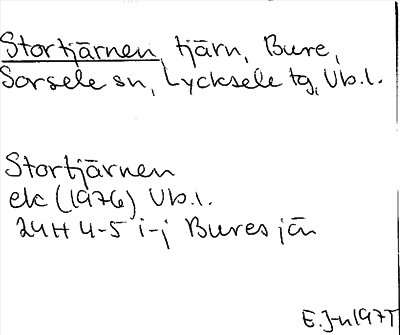 Stortjärnen, tjärn, Bure,
Sorsele sn, Lycksele tg, Vb.l.
Stortjärnen
ek (1976) Vb.l.
24H 4-5 i-j Buresjön
E.J-n 1977